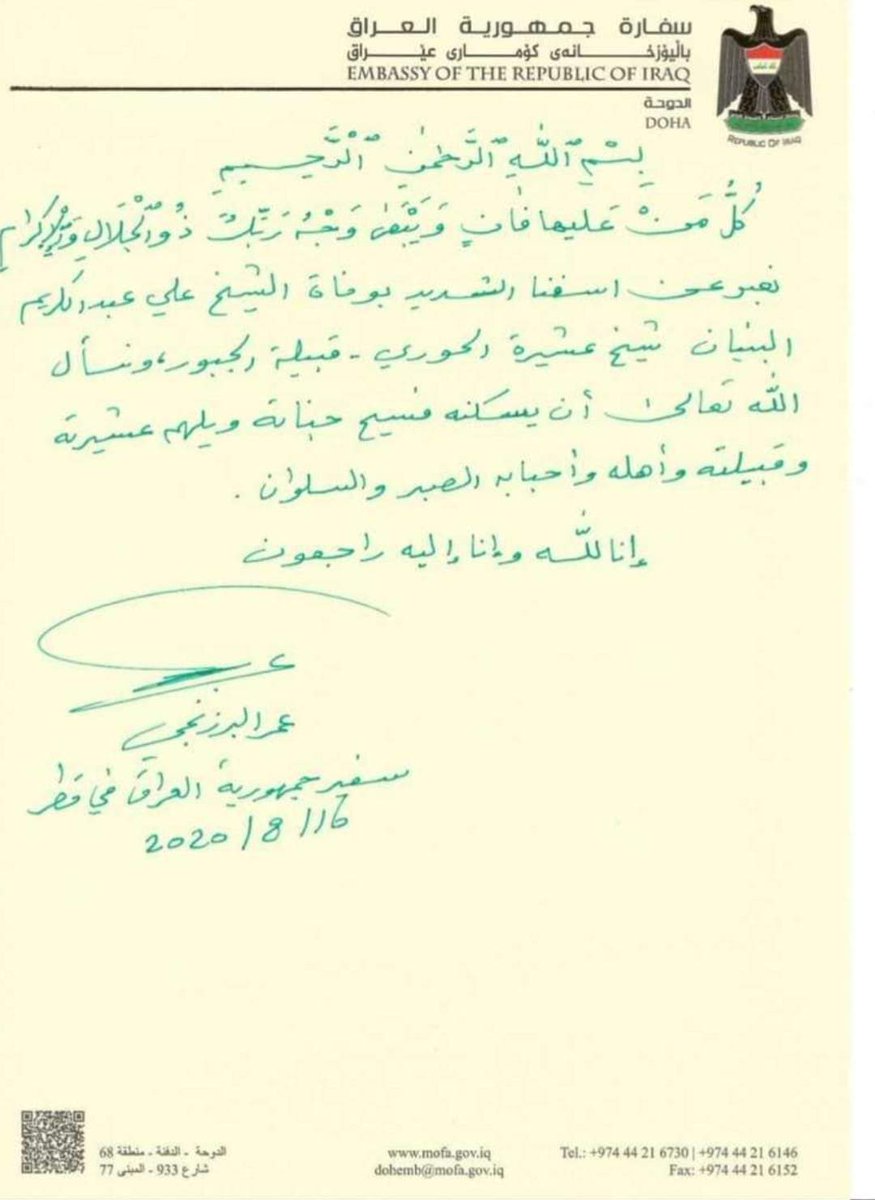 سفارة جمهورية العراق
باڵیۆزخانەی کۆماری عێراق
EMBASSY OF THE REPUBLIC OF IRAQ
الدوحة
DOHA
REPUBLIC OF IRAQ
بِسْمِ ٱللَّهِ ٱلرَّحْمَٰنِ ٱلرَّحِيمِ
كُلُّ مَنْ عَليها فَانٍ وَيَبْقَىٰ وَجْهُ رَبِّكَ ذُو ٱلْجَلَالِ وَٱلْإِكْرَامِ
نعبر عن اسفنا الشديد بوفاة الشيخ علي عبدالكريم
البنيان شيخ عشيرة الحوري - قبيلة الجبور، ونسأل
اللّه تعالىٰ أن يسكنه فسيح جناته ويلهم عشيرته
وقبيلته وأهله وأحبابه الصبر والسلوان .
إنا للّه وإنا إليه راجعون
عمر البرزنجي
سفير جمهورية العراق في قطر
2020/8/16
الدوحة - الدفنة - منطقة 68
شارع 933 - المبنى 77
www.mofa.gov.iq
dohemb@mofa.gov.iq
Tel.: +974 44 21 6730 | +974 44 21 6146
Fax: +974 44 21 6152